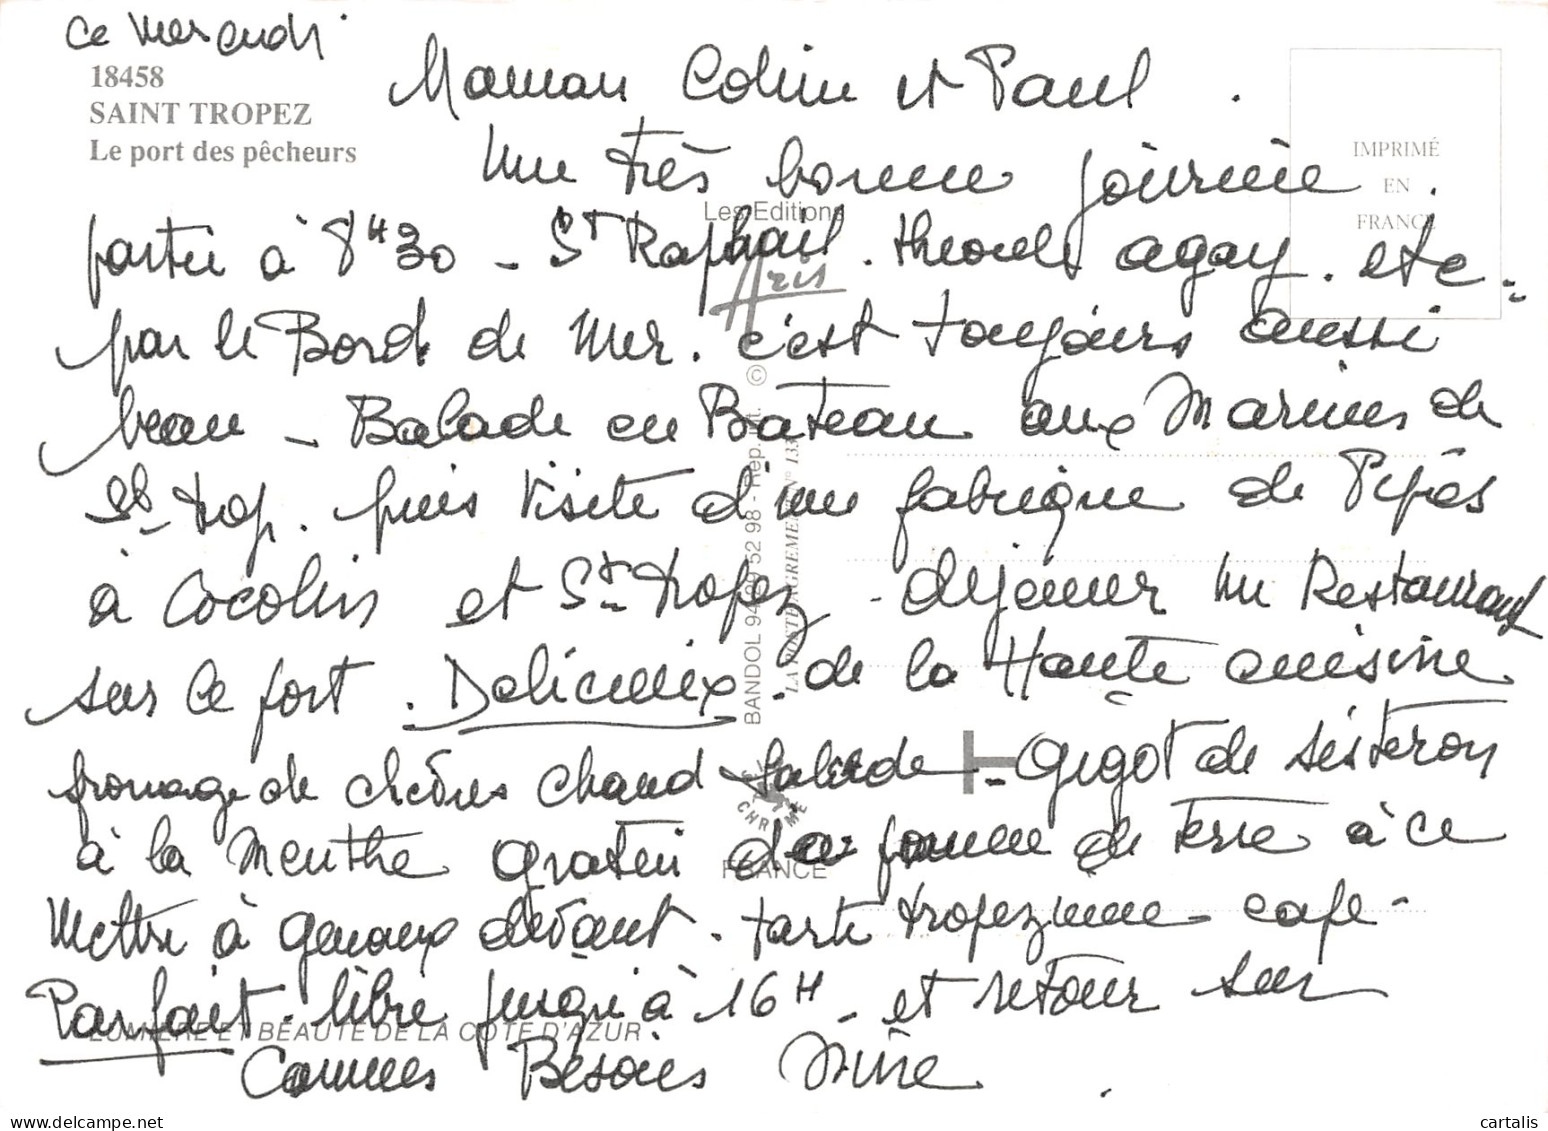 ce mercredi
18458
SAINT TROPEZ
Le port des pêcheurs
Maman Colin et Paul.
IMPRIMÉ
EN
FRANCE
Une très bonne journée.
Les Editions
Aris
partie à 8H30 - St Raphaël. théoule agay. etc -
par le Bord de Mer. c'est toujours aussi
beau - Balade en Bateau aux Marines de
St-trop. puis visite d'une fabrique de Pipes
à Cocolin et St-tropez - déjeuner un Restaurant
sur le port. Delicieux. de la Haute cuisine
fromage de chèvres chaud salade - Gigot de sisteron
à la Menthe gratin de pomme de terre à ce
Mettre à genoux devant. tarte tropezienne - café -
Parfait. libre jusqu'à 16H - et retour sur
Cannes Besoies Mine.
BANDOL 94 29 52 98 - Rep. int. ©
LA POSTE AGREMENT N° 133
CHROME
FRANCE
LUMIÈRE ET BEAUTÉ DE LA CÔTE D'AZUR
cartalis.com